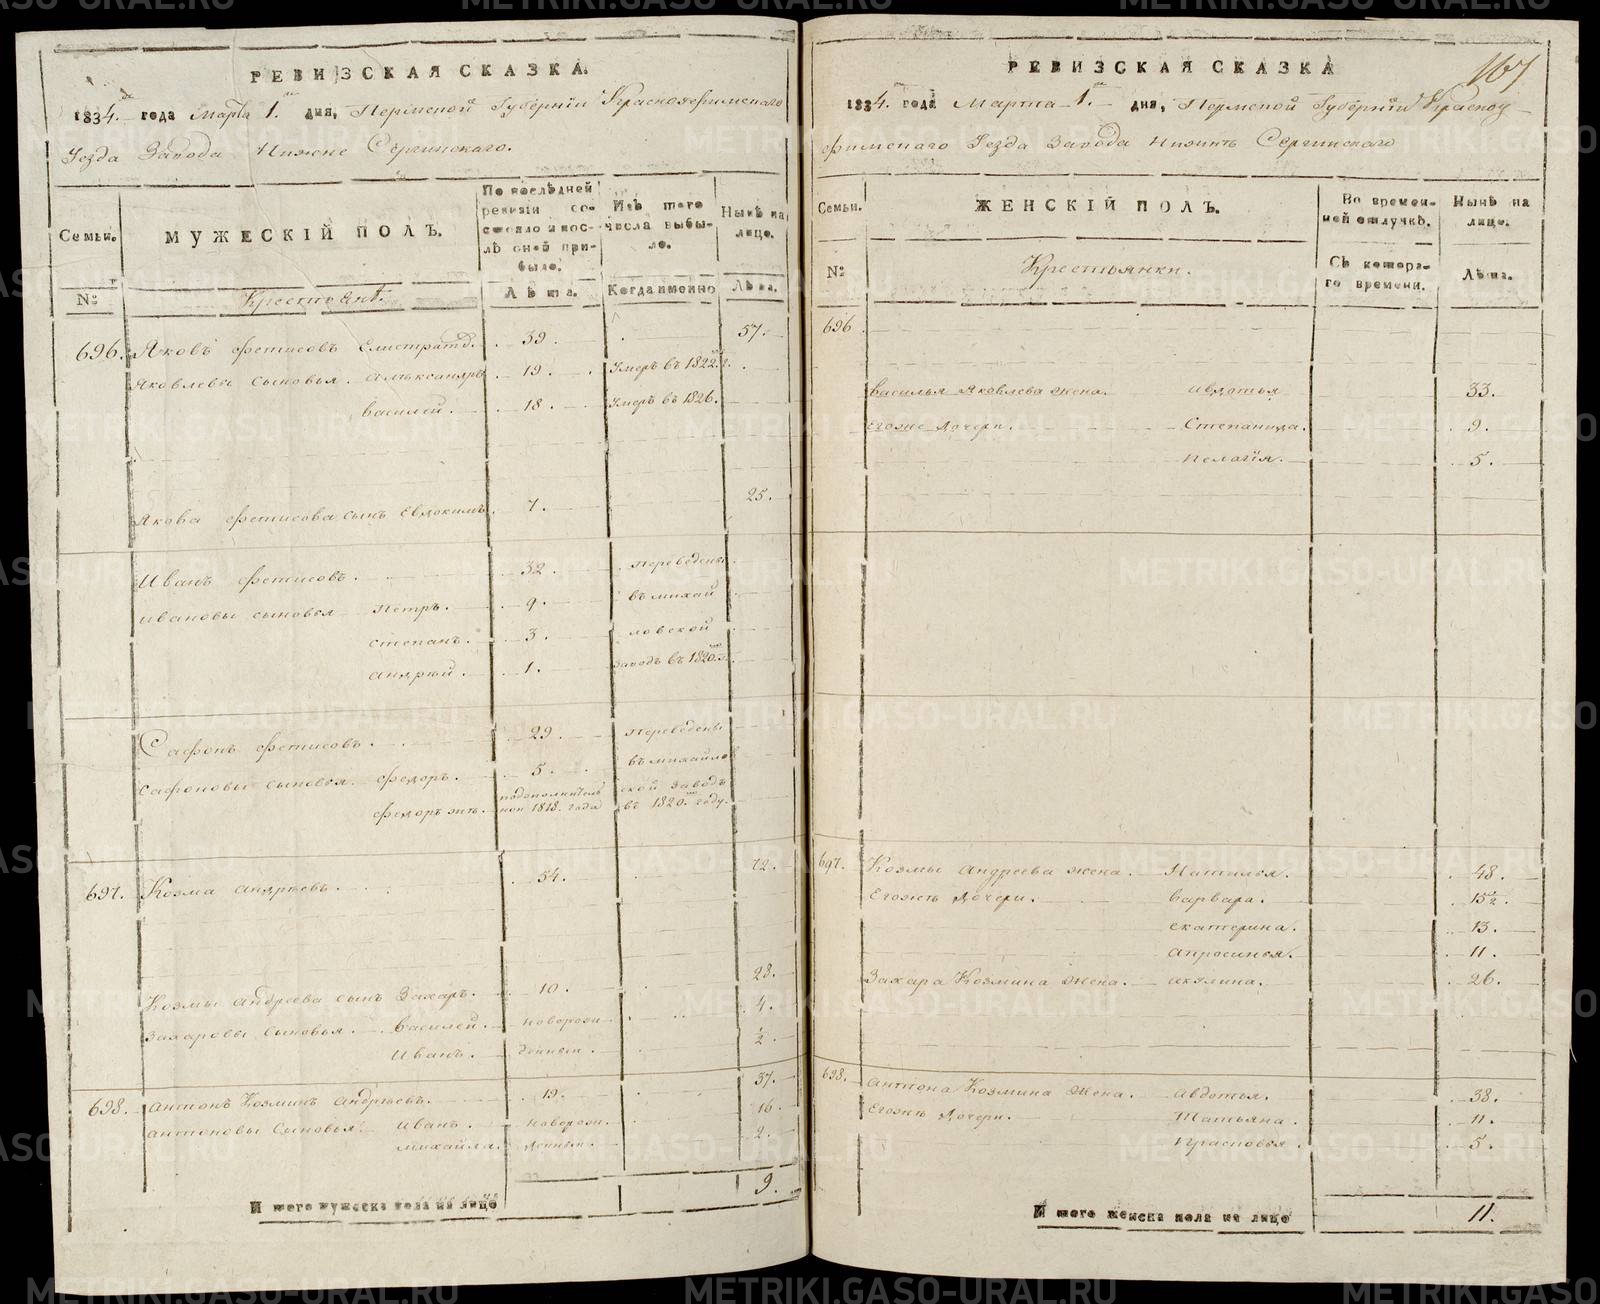 РЕВИЗСКАЯ СКАЗКА.
1834. года Марта 1. дня, Пермской Губернiи Красноуфимскаго
Уезда Завода Нижне Сергинскаго.
Семьи.
МУЖЕСКIЙ ПОЛЪ.
По послѣдней ревизiи состояло и послѣ оной прибыло.
Изъ того числа выбыло.
Нынѣ на лице.
№
Крестьянѣ.
Лѣта.
Когда именно
Лѣта.
696. Яковъ Фетисовъ Елистратов. 39. 57.
Яковлевы сыновья. Алѣксандръ 19. Умеръ въ 1822. г.
Василей. 18. Умеръ въ 1826.
Якова Фетисова сынъ Евдокимъ. 7. 25.
Иванъ Фетисовъ. 32. Переведены
Ивановы сыновья Петръ. 9. въ михай
степанъ. 3. ловской
андрѣй. 1. заводъ въ 1820.
Сафонъ Фетисовъ. 29. Переведены
Сафоновы сыновья. Федоръ. 5. въ михайлов
Федоръ жъ. подополнитель ской заводъ
ной 1818. года въ 1820. году.
697. Козма андрѣевъ. 54. 72.
Козмы андрѣева сынъ Захаръ. 10. 28.
Захаровы сыновья. Василей. новорож 4.
Иванъ. денныи. ½.
698. антонъ Козминъ андрѣевъ. 19. 37.
антоновы сыновья. иванъ. новорож. 16.
михайла. денныи. 2.
И того мужеска пола на лицо 9.
РЕВИЗСКАЯ СКАЗКА
167
1834. года Марта 1. дня, Пермской Губернiи Красноу
фимскаго Уезда Завода Нижнѣ Сергинскаго
Семьи.
ЖЕНСКIЙ ПОЛЪ.
Во временной отлучкѣ.
Нынѣ на лице.
№
Крестьянки.
Съ котораго времени.
Лѣта.
696
Василья Яковлева жена. Авдотья 33.
Егоже дочери. Степанида. 9.
Пелагiя. 5.
697. Козмы Андреева жена. Наталья. 48.
Егожъ дочери. варвара. 15½.
екатерина. 13.
апросинья. 11.
Захара Козмина жена. акулина. 26.
698. антона Козмина жена. авдотья. 38.
Егожъ дочери. Татьяна. 11.
Прасковья. 5.
И того женска пола на лицо 11.
METRIKI.GASO-URAL.RU